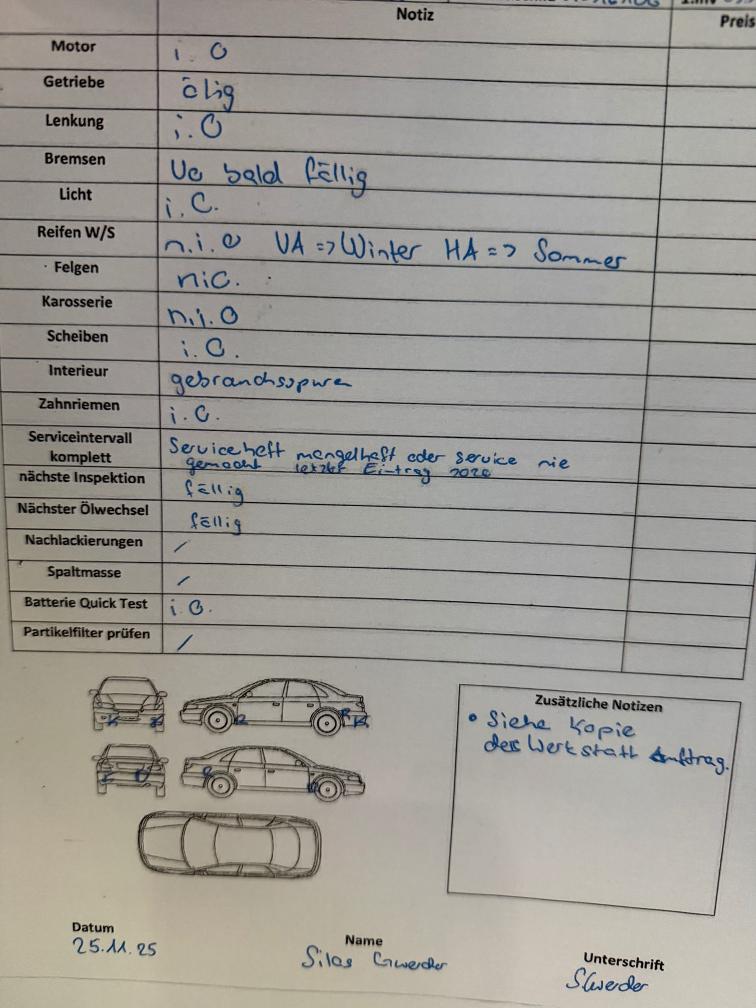 Notiz
Preis
Motor i.O
Getriebe ölig
Lenkung i.O
Bremsen bald fällig
Licht i.O.
Reifen W/S n.i.O VA => Winter HA => Sommer
Felgen niO.
Karosserie n.i.O
Scheiben i.O.
Interieur gebrauchsspuren
Zahnriemen i.O.
Serviceintervall komplett Serviceheft mangelhaft oder service nie
gemacht letzter Eintrag
nächste Inspektion fällig
Nächster Ölwechsel fällig
Nachlackierungen /
Spaltmasse /
Batterie Quick Test i.O.
Partikelfilter prüfen /
Zusätzliche Notizen
• Siehe Kopie
des Werkstatt Auftrag.
Datum
25.11.25
Name
Silas Gwerder
Unterschrift
SGwerder